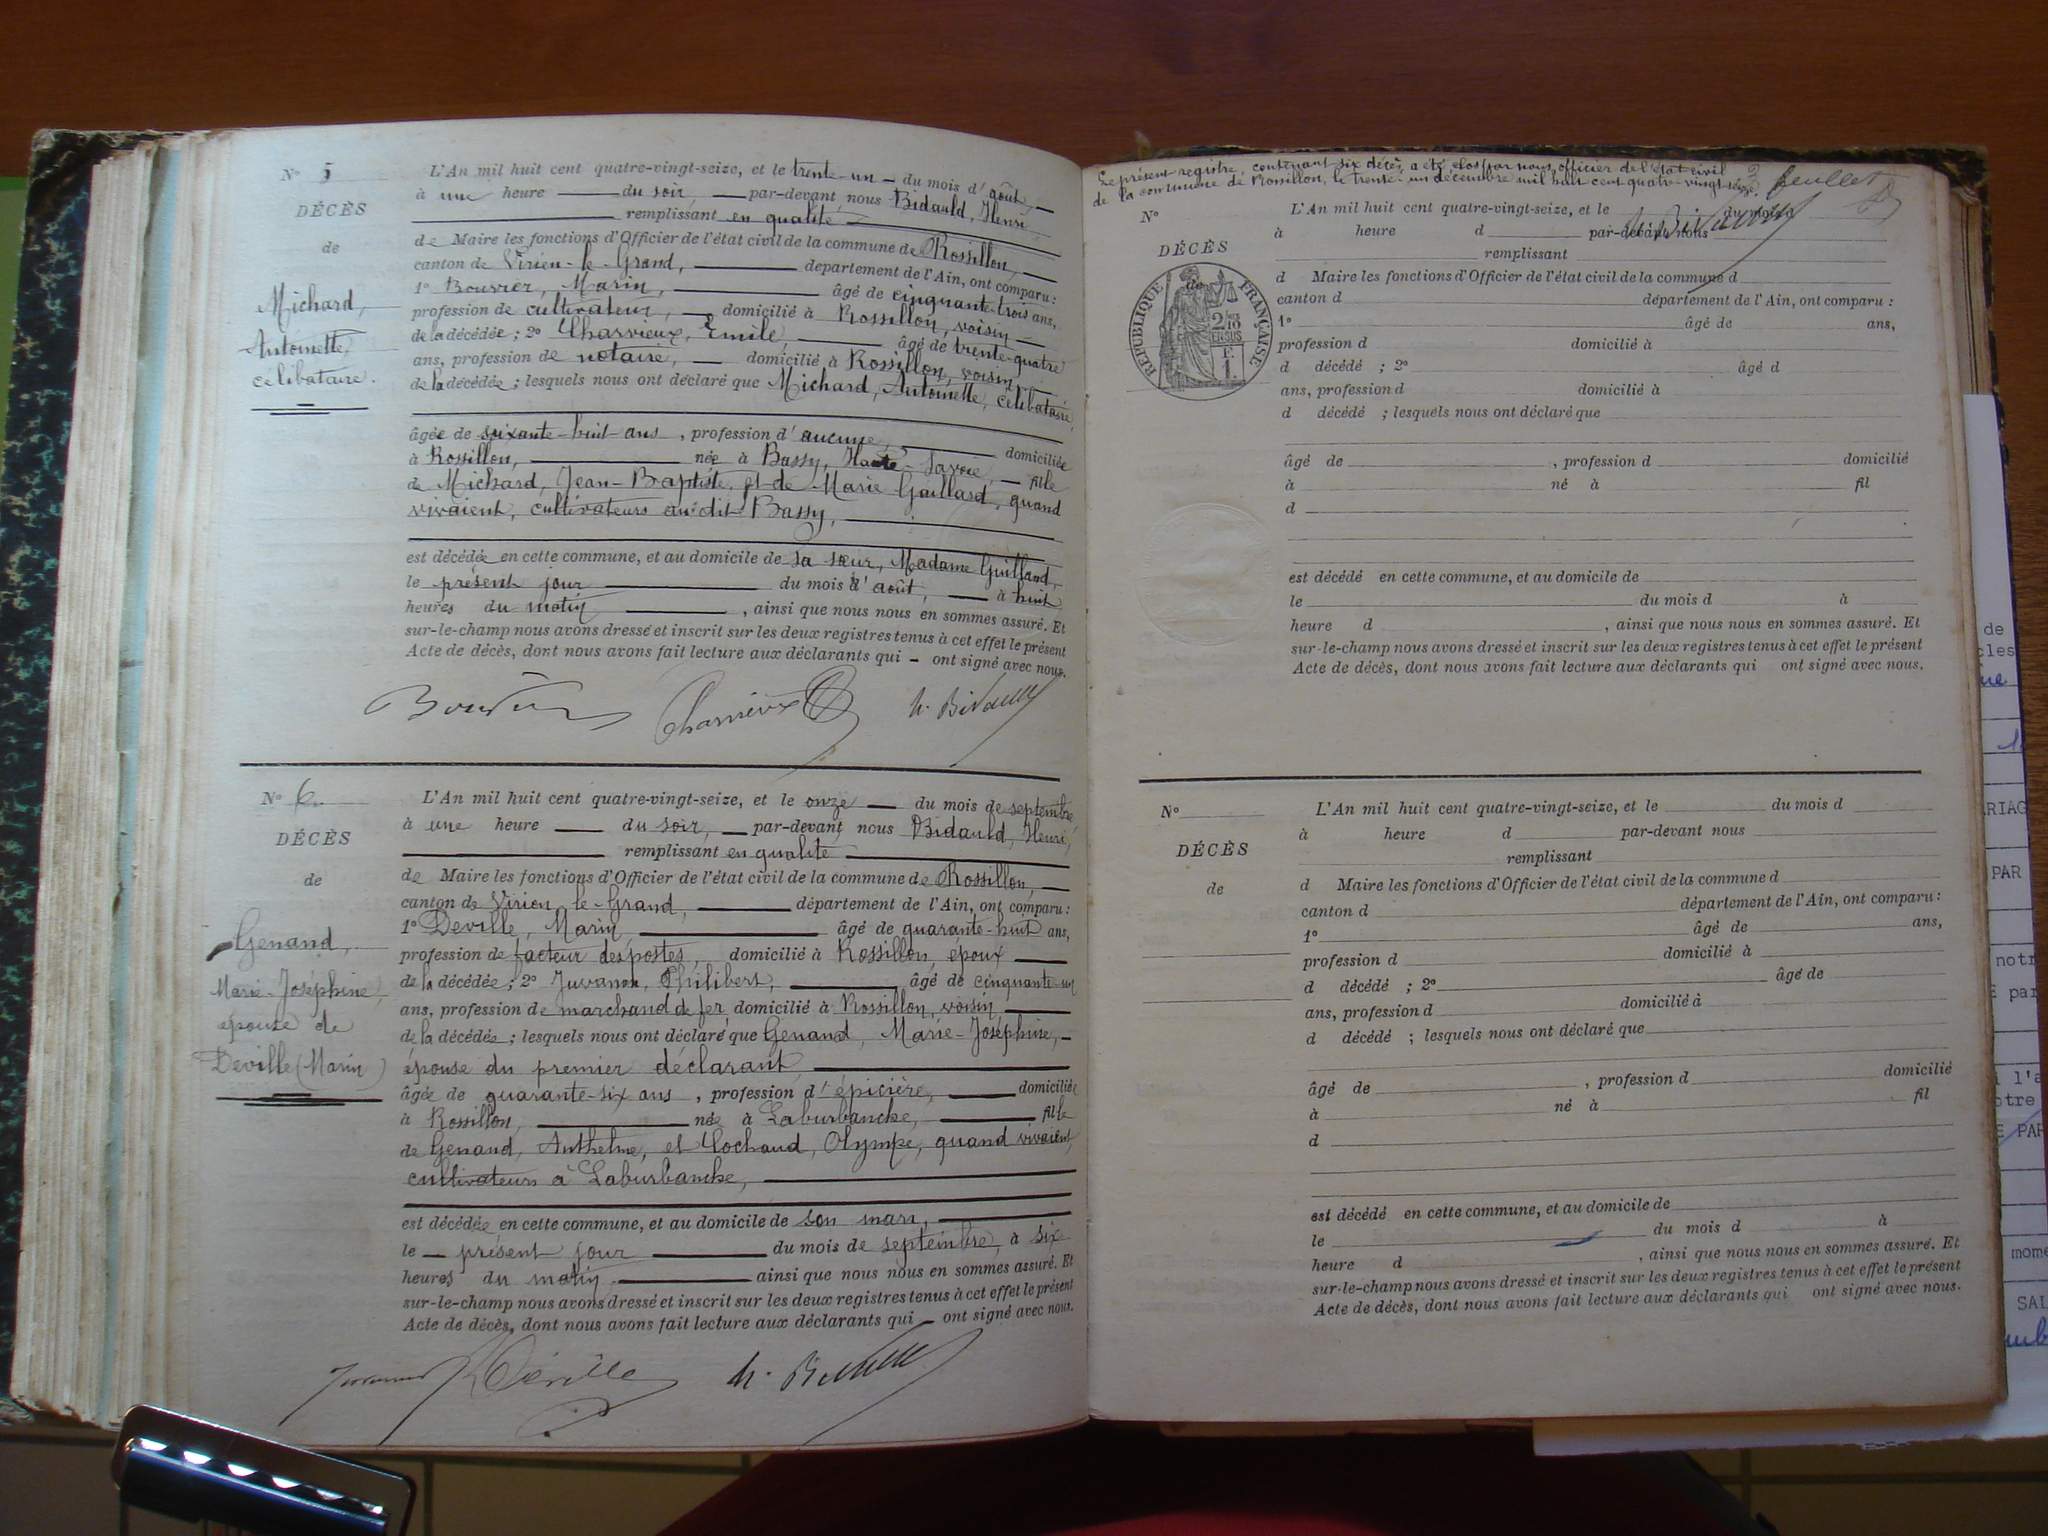 N° 5
DÉCÈS
de
Michard,
Antoinette,
célibataire.
L'An mil huit cent quatre-vingt-seize, et le trente-un du mois d'août,
à une heure du soir, par-devant nous Bidauld, Henri
remplissant en qualité
de Maire les fonctions d'Officier de l'état civil de la commune de Rossillon,
canton de Virieu-le-Grand, département de l'Ain, ont comparu :
1° Bouvier, Marin, âgé de cinquante-trois ans,
profession de cultivateur, domicilié à Rossillon, voisin
de la décédée ; 2° Charvieux, Emile, âgé de trente-quatre
ans, profession de notaire, domicilié à Rossillon, voisin
de la décédée ; lesquels nous ont déclaré que Michard, Antoinette, célibataire,
âgée de soixante-huit ans, profession d'aucune, domiciliée
à Rossillon, née à Bassy, Haute-Savoie, fille
de Michard, Jean-Baptiste, et de Marie Gaillard, quand
vivaient, cultivateurs au dit Bassy,
est décédée en cette commune, et au domicile de sa sœur, Madame Guilland,
le présent jour du mois d'août, à huit
heures du matin, ainsi que nous nous en sommes assuré. Et
sur-le-champ nous avons dressé et inscrit sur les deux registres tenus à cet effet le présent
Acte de décès, dont nous avons fait lecture aux déclarants qui ont signé avec nous.
Bouvier Charvieux h. Bidauld
N° 6
DÉCÈS
de
Genand,
Marie-Joséphine,
épouse de
Deville (Marin)
L'An mil huit cent quatre-vingt-seize, et le onze du mois de septembre,
à une heure du soir, par-devant nous Bidauld, Henri,
remplissant en qualité
de Maire les fonctions d'Officier de l'état civil de la commune de Rossillon,
canton de Virieu-le-Grand, département de l'Ain, ont comparu :
1° Deville, Marin, âgé de quarante-huit ans,
profession de facteur des postes, domicilié à Rossillon, époux
de la décédée ; 2° Juvanon, Philibert, âgé de cinquante-un
ans, profession de marchand de fer domicilié à Rossillon, voisin
de la décédée ; lesquels nous ont déclaré que Genand, Marie-Joséphine,
épouse du premier déclarant,
âgée de quarante-six ans, profession d'épicière, domiciliée
à Rossillon, née à Laburbanche, fille
de Genand, Anthelme, et Cochaud, Olympe, quand vivaient,
cultivateurs à Laburbanche,
est décédée en cette commune, et au domicile de son mari,
le présent jour du mois de septembre, à six
heures du matin ainsi que nous nous en sommes assuré. Et
sur-le-champ nous avons dressé et inscrit sur les deux registres tenus à cet effet le présent
Acte de décès, dont nous avons fait lecture aux déclarants qui ont signé avec nous.
Juvanon Deville h. Bidauld
Le présent registre, contenant six décès, a été clos par nous, officier de l'état civil
de la commune de Rossillon, le trente-un décembre mil huit cent quatre-vingt-seize.
feuillet
h. Bidauld
N°
DÉCÈS
de
RÉPUBLIQUE FRANÇAISE
L'An mil huit cent quatre-vingt-seize, et le du mois d
à heure d par-devant nous
remplissant
d Maire les fonctions d'Officier de l'état civil de la commune d
canton d département de l'Ain, ont comparu :
1° âgé de ans,
profession d domicilié à
d décédé ; 2° âgé d
ans, profession d domicilié à
d décédé ; lesquels nous ont déclaré que
âgé de , profession d domicilié
à né à fil
d
est décédé en cette commune, et au domicile de
le du mois d à
heure d , ainsi que nous nous en sommes assuré. Et
sur-le-champ nous avons dressé et inscrit sur les deux registres tenus à cet effet le présent
Acte de décès, dont nous avons fait lecture aux déclarants qui ont signé avec nous.
N°
DÉCÈS
de
L'An mil huit cent quatre-vingt-seize, et le du mois d
à heure d par-devant nous
remplissant
d Maire les fonctions d'Officier de l'état civil de la commune d
canton d département de l'Ain, ont comparu :
1° âgé de ans,
profession d domicilié à
d décédé ; 2° âgé de
ans, profession d domicilié à
d décédé ; lesquels nous ont déclaré que
âgé de , profession d domicilié
à né à fil
d
est décédé en cette commune, et au domicile de
le du mois d à
heure d , ainsi que nous nous en sommes assuré. Et
sur-le-champ nous avons dressé et inscrit sur les deux registres tenus à cet effet le présent
Acte de décès, dont nous avons fait lecture aux déclarants qui ont signé avec nous.
de
cles
PAR
notr
par
mome
SAL